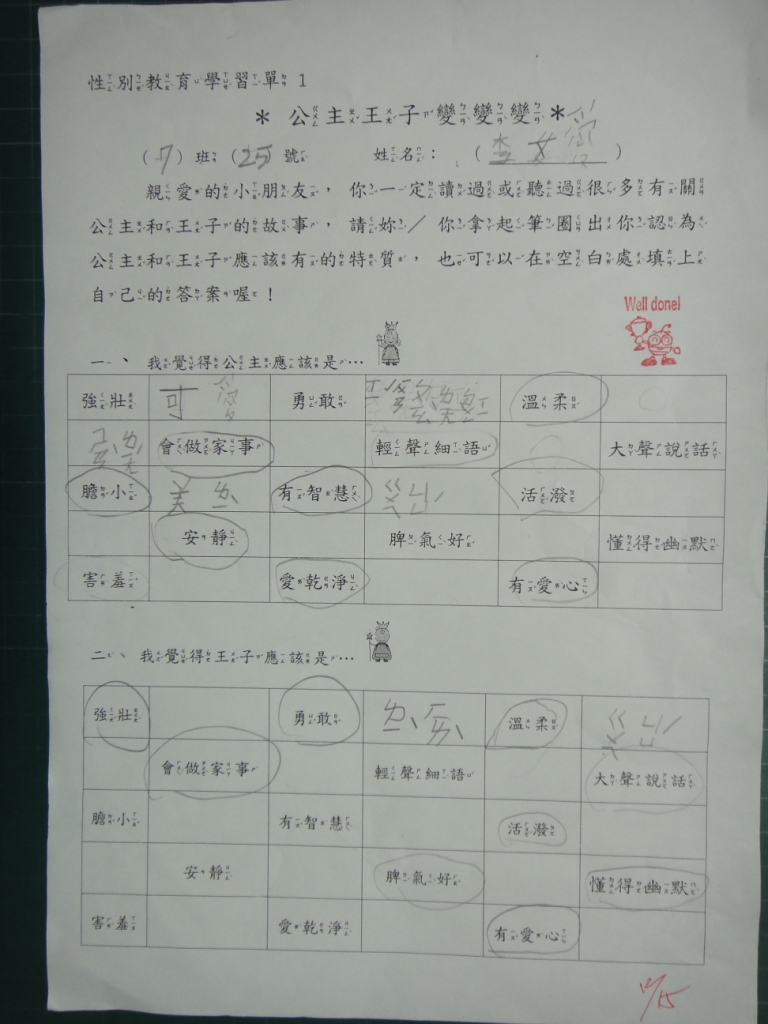 性別教育學習單 1
* 公主王子變變變 *
(7) 班 (25) 號 姓名：( )
親愛的小朋友，你一定讀過或聽過很多有關
公主和王子的故事，請妳／你拿起筆圈出你認為
公主和王子應該有的特質，也可以在空白處填上
自己的答案喔！
Well done!
一、 我覺得公主應該是…
強壯 可 勇敢 溫柔
會做家事 輕聲細語 大聲說話
膽小 美 有智慧 活潑
安靜 脾氣好 懂得幽默
害羞 愛乾淨 有愛心
二、 我覺得王子應該是…
強壯 勇敢 溫柔
會做家事 輕聲細語 大聲說話
膽小 有智慧 活潑
安靜 脾氣好 懂得幽默
害羞 愛乾淨 有愛心
12/15